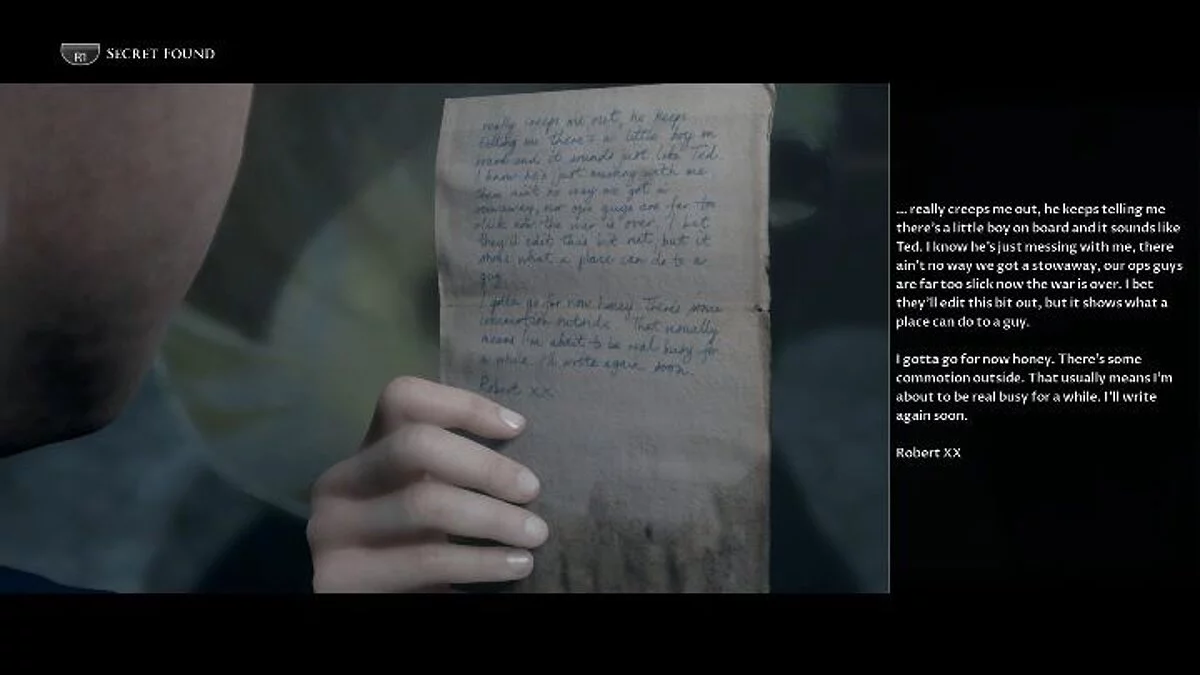 R1 SECRET FOUND
really creeps me out, he keeps
telling me there's a little boy on
board and it sounds just like Ted.
I know he's just messing with me
there ain't no way we got a
stowaway, our ops guys are far too
slick now the war is over. I bet
they'll edit this bit out, but it
shows what a place can do to a
guy.
I gotta go for now honey. There's some
commotion outside. That usually
means I'm about to be real busy for
a while. I'll write again soon.
Robert XX
... really creeps me out, he keeps telling me
there's a little boy on board and it sounds like
Ted. I know he's just messing with me, there
ain't no way we got a stowaway, our ops guys
are far too slick now the war is over. I bet
they'll edit this bit out, but it shows what a
place can do to a guy.
I gotta go for now honey. There's some
commotion outside. That usually means I'm
about to be real busy for a while. I'll write
again soon.
Robert XX